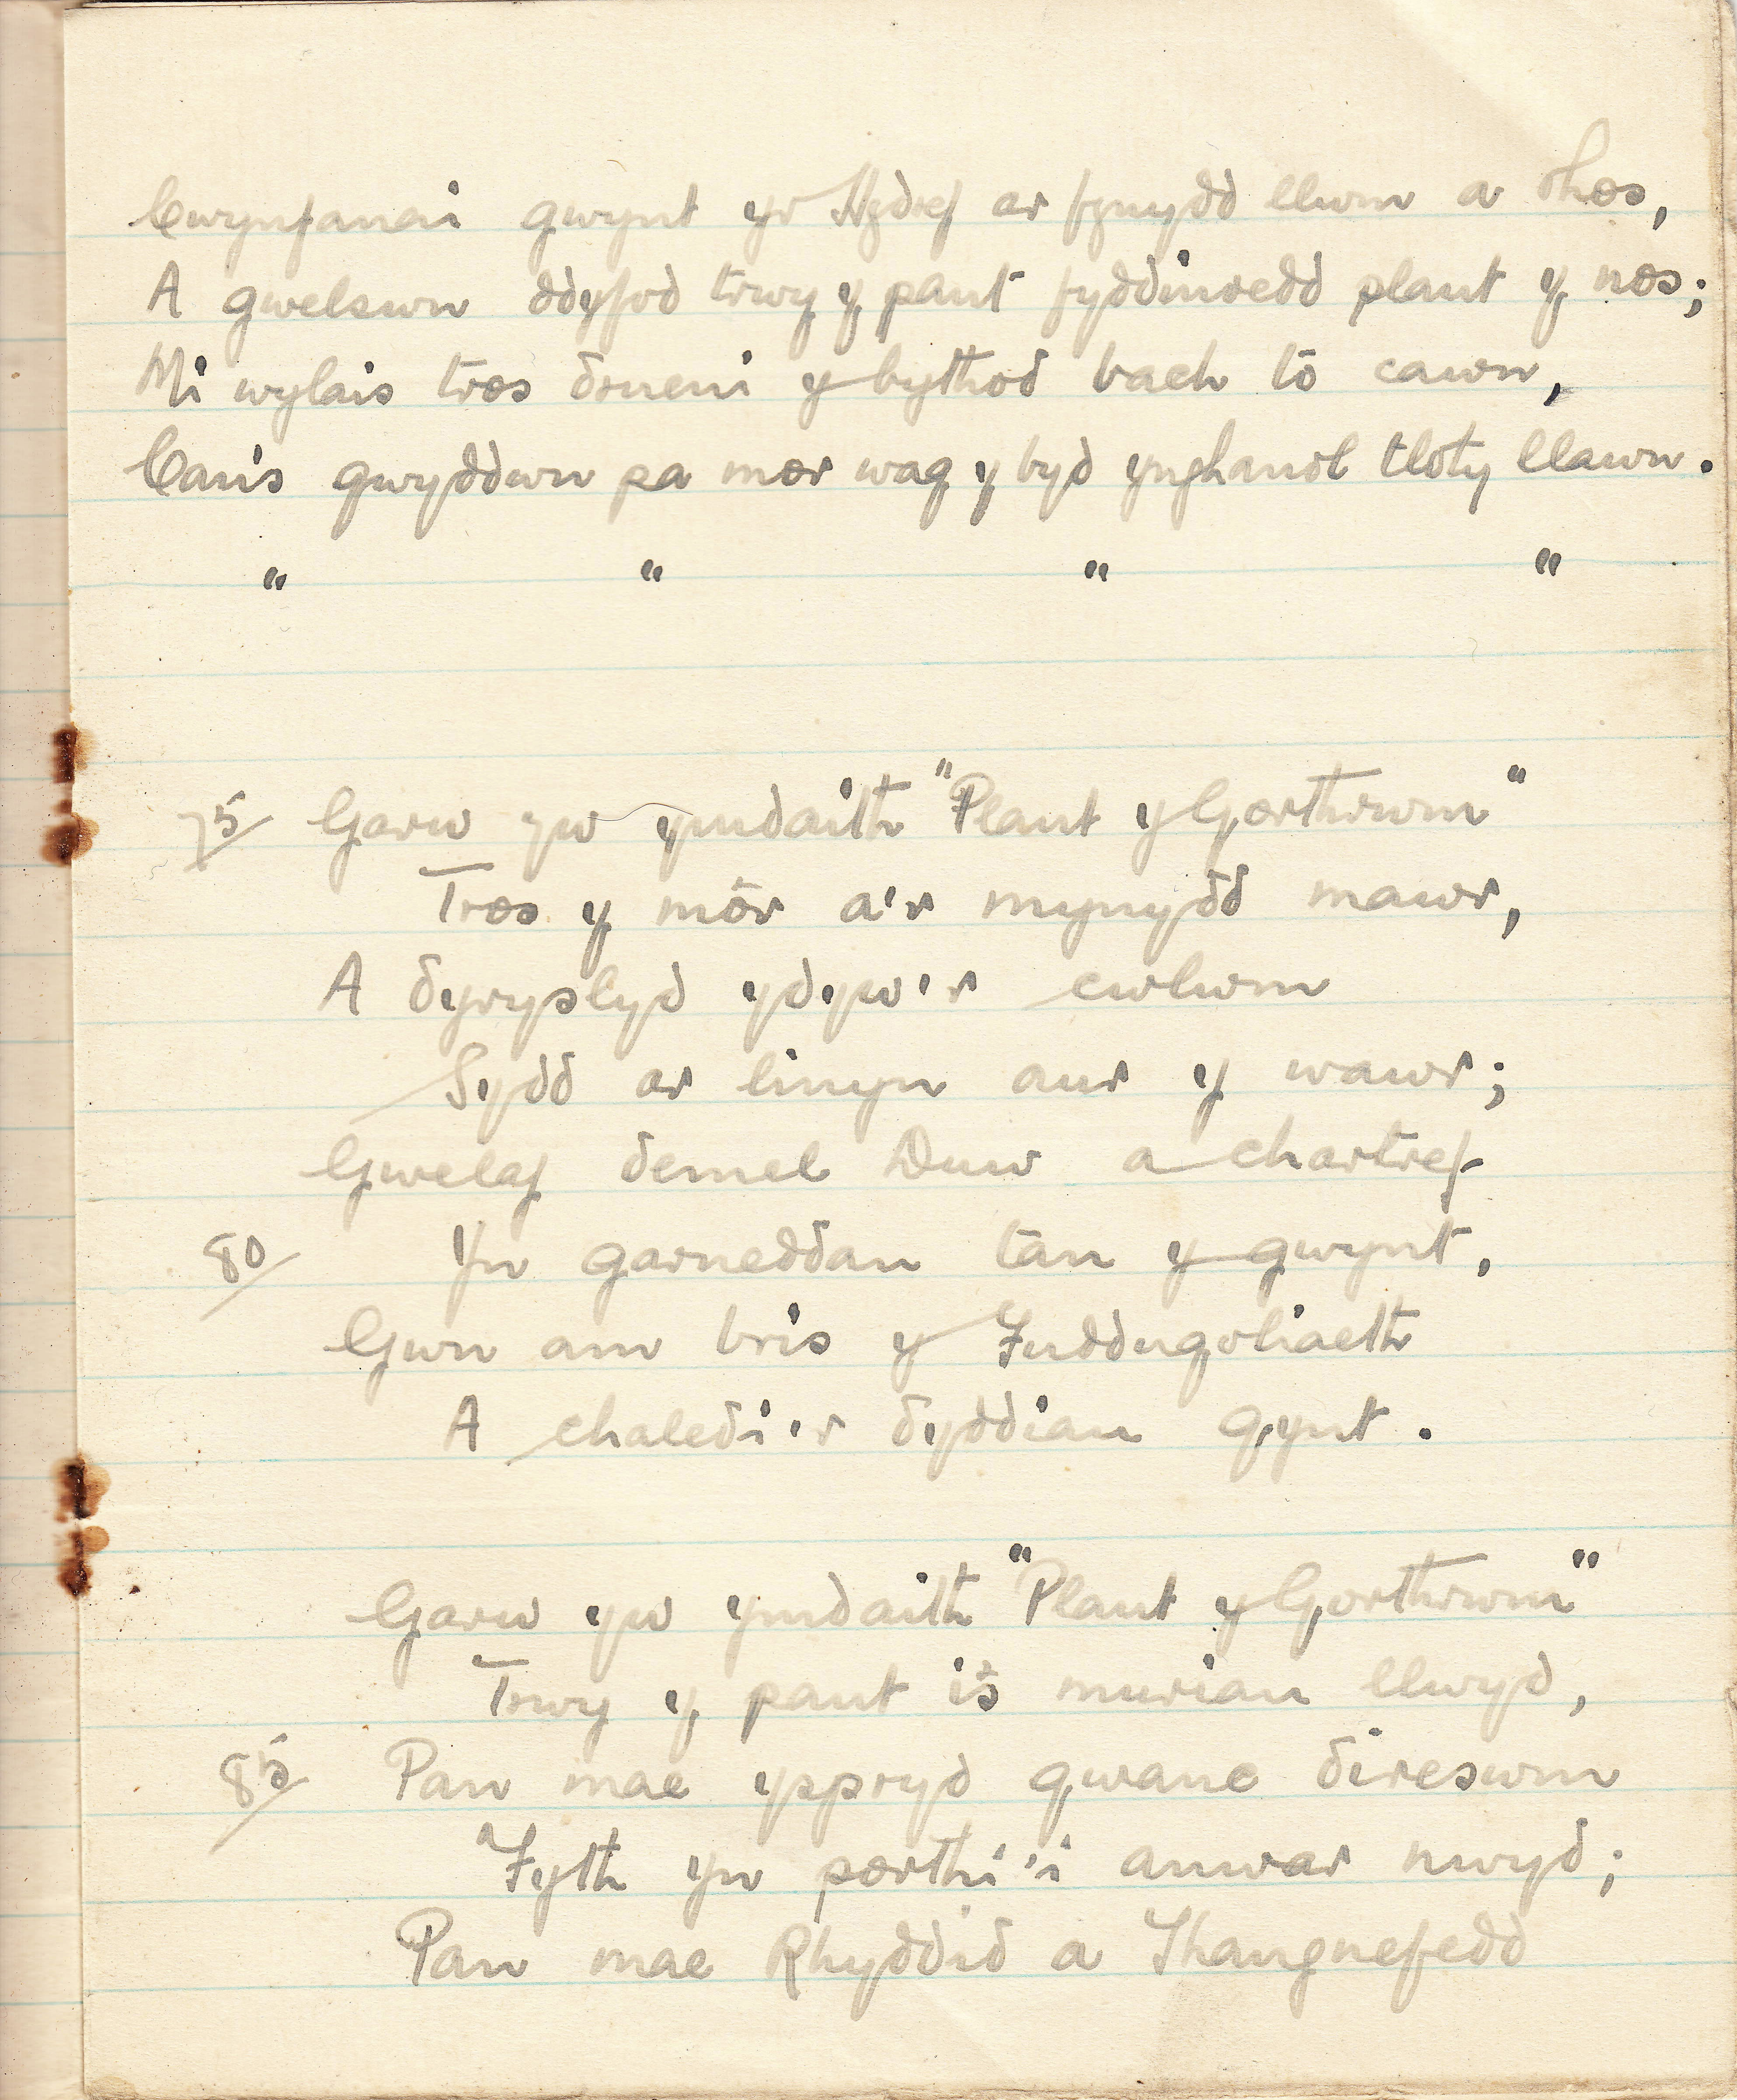 Cwynfanai gwynt yr Hydref ar fynydd llwm a rhos,
A gwelswn ddyfod trwy y pant fyddinoedd plant y nos;
Mi wylais tros drueni y bythod bach tô cawn,
Canis gwyddwn pa mor wag y byd ynghanol tloty llawn.
" " " "
75/ Garw yw ymdaith "Plant y Gorthrwm"
Tros y môr a'r mynydd mawr,
A dyryslyd ydyw'r cwlwm
Sydd ar linyn aur y wawr;
Gwelaf demel Duw a chartref
80/ Yn garneddau tan y gwynt,
Gwn am bris y Fuddugoliaeth
A chaledi'r dyddiau gynt.
Garw yw ymdaith "Plant y Gorthrwm"
Trwy y pant is muriau llwyd,
85/ Pan mae yspryd gwanc direswm
Fyth yn porthi'i anwar nwyd;
Pan mae Rhyddid a Thangnefedd